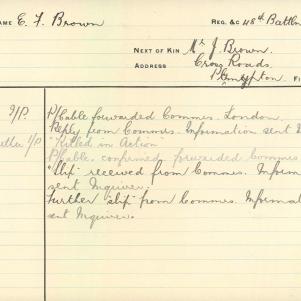 NAME E. F. Brown REG. &C 48th Battln
NEXT OF KIN Mr J. Brown.
ADDRESS Cross Roads.
Plympton
9/P. P/Cable forwarded Commes. London.
Reply from Commes. Information sent
1/P "Killed in Action"
P/Cable, confirmed forwarded Commes
"Slip" received from Commes. Inform
sent Inquirer.
Further "slip" from Commes. Informat
sent Inquirer.